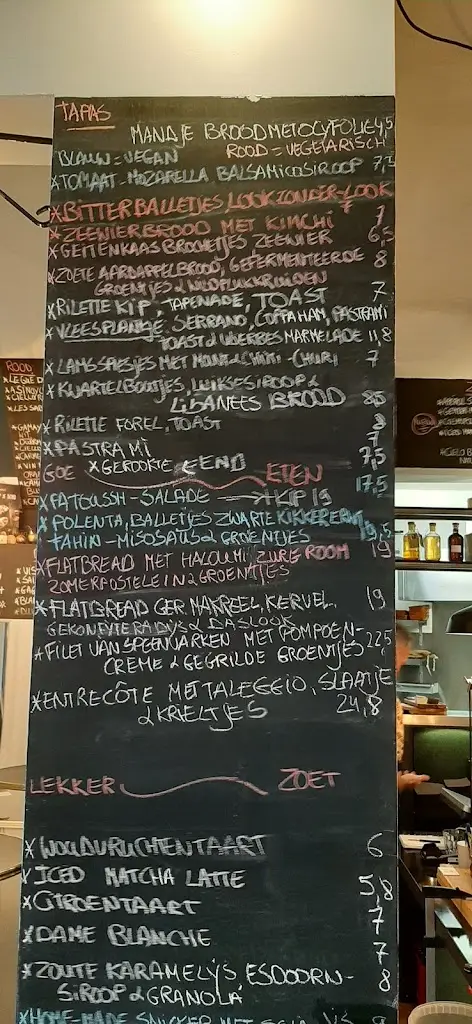 TAPAS
MANDJE BROOD MET OLYFOLIE 4,5
BLAUW = VEGAN ROOD = VEGETARISCH
*TOMAAT-MOZARELLA BALSAMICOSIROOP 7,5
*BITTERBALLETJES LOOK ZONDER LOOK 7
*ZEEWIERBROOD MET KIMCHI 7
*GEITENKAASBROCHETJES, ZEEWIER 6,5
*ZOETE AARDAPPELBROOD, GEFERMENTEERDE 8
GROENTJES & WILDPLUKKRUIDEN
*RILETTE KIP, TAPENADE, TOAST 7
*VLEESPLANKJE, SERRANO, COPPA HAM, PASTRAMI
TOAST & MARMELADE 11,8
*LAMSSPIESJES MET MUNT-CHIMI-CHURI 7
*KWARTELBOUTJES, LUIKSE SIROOP &
LIBANEES BROOD 8,5
*RILETTE FOREL, TOAST 8
*PASTRAMI 7
*GEROOKTE EEND 7,5
GOE ETEN
*FATOUSH-SALADE KIP 19 17,5
*POLENTA, BALLETJES ZWARTE KIKKERERWT
TAHIN-MISOSAUS & GROENTJES 19,5
*FLATBREAD MET HALOUMI, ZURE ROOM 19
ZOMERPOSTELEIN & GROENTJES
*FLATBREAD GER. MAKREEL, KERVEL, 19
GEKONFYTE RADYS & DASLOOK
*FILET VAN SPEENVARKEN MET POMPOEN- 22,5
CREME & GEGRILDE GROENTJES
*ENTRECÔTE MET TALEGGIO, SLAATJE
& KRIELTJES 24,8
LEKKER ZOET
*WOUDVRUCHTENTAART 6
*ICED MATCHA LATTE 5,8
*CITROENTAART 7
*DAME BLANCHE 7
*ZOUTE KARAMELYS ESDOORN- 8
SIROOP & GRANOLA
*HOME-MADE SNICKER MET
ROOD